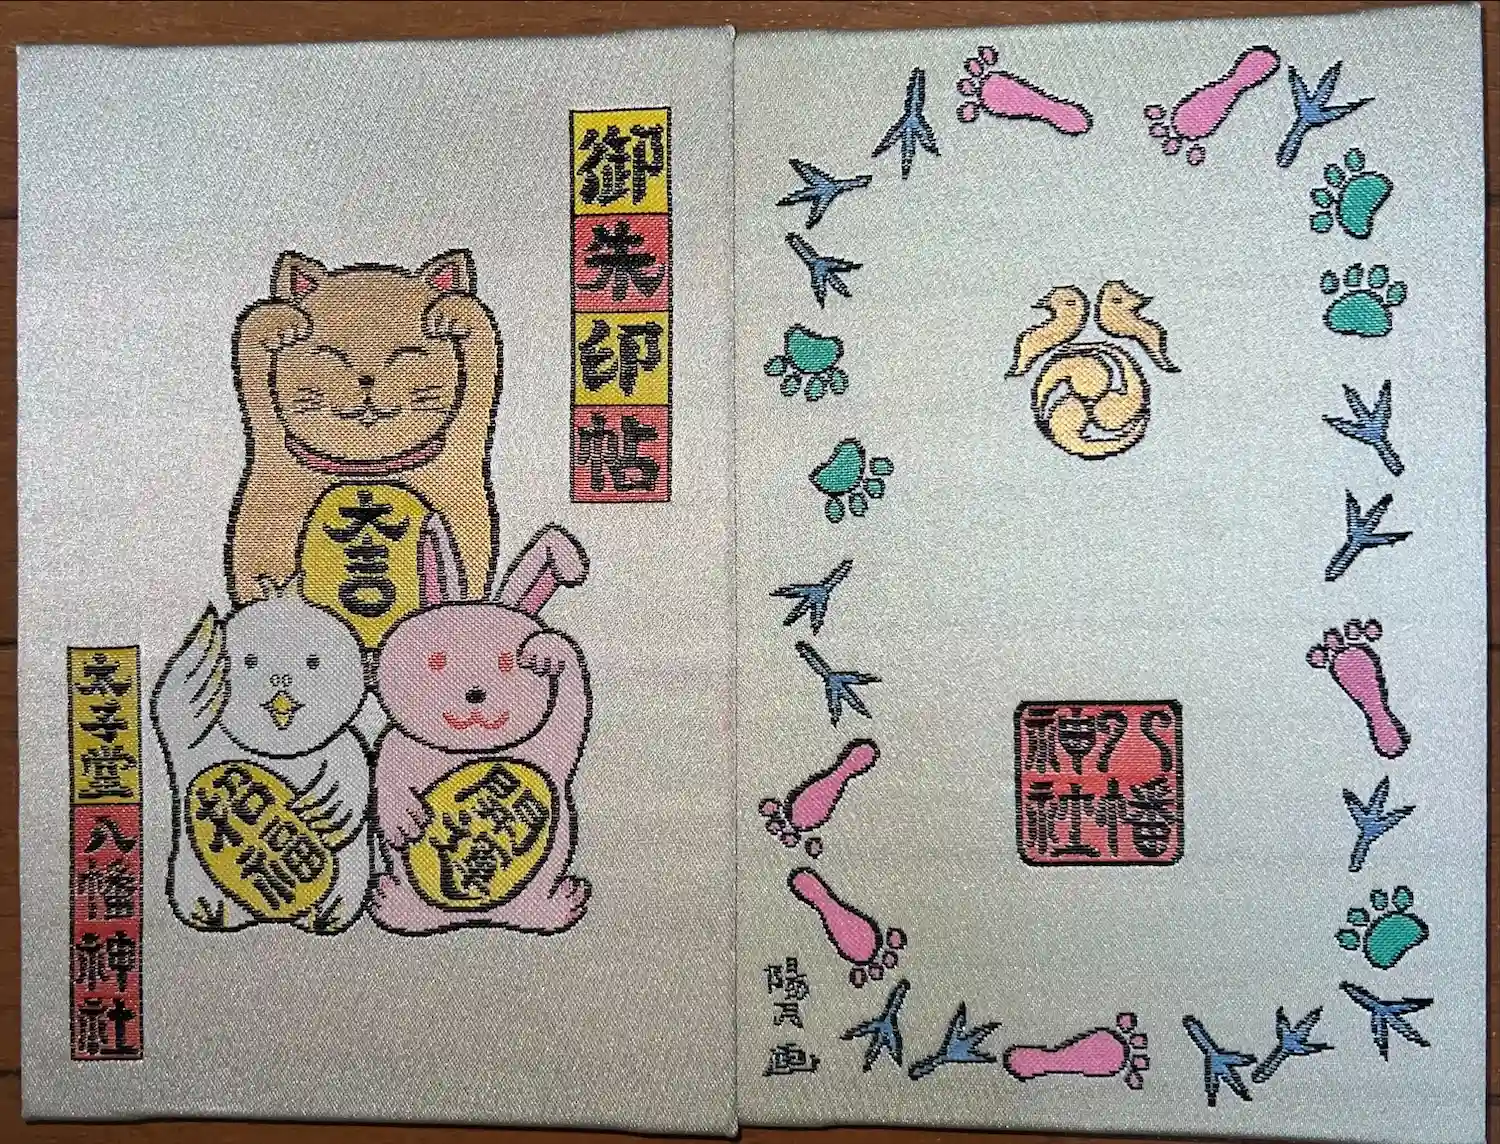 御朱印帖
大吉
招福
開運
太子堂八幡神社
八幡
神社